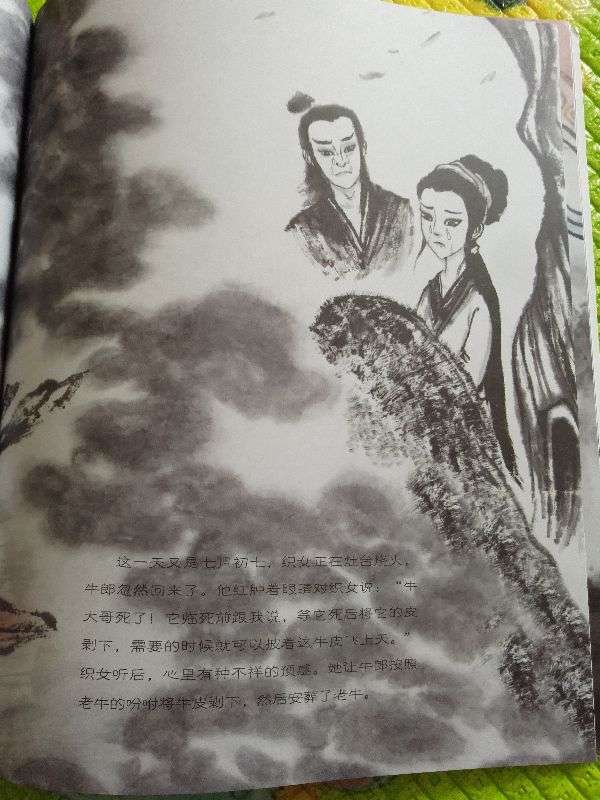 这一天又是七月初七，织女正在灶台烧火，
牛郎忽然回来了。他红肿着眼睛对织女说：“牛
大哥死了！它临死前跟我说，等它死后将它的皮
剥下，需要的时候就可以披着这牛皮飞上天。”
织女听后，心里有种不祥的预感。她让牛郎按照
老牛的吩咐将牛皮剥下，然后安葬了老牛。